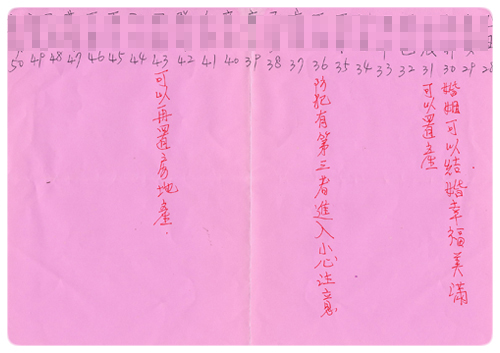 50 49 48 47 46 45 44 43 42 41 40 39 38 37 36 35 34 33 32 31 30 29 28
婚姻可以結婚幸福美滿
可以置產
防犯有第三者進入小心注意
可以再置房地產.